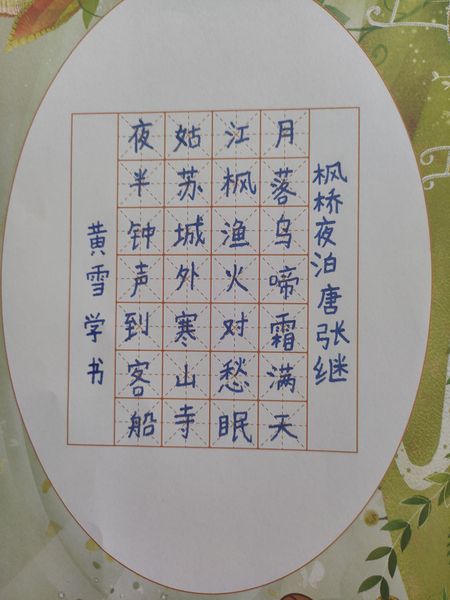 枫桥夜泊唐张继
月落乌啼霜满天
江枫渔火对愁眠
姑苏城外寒山寺
夜半钟声到客船
黄雪学书